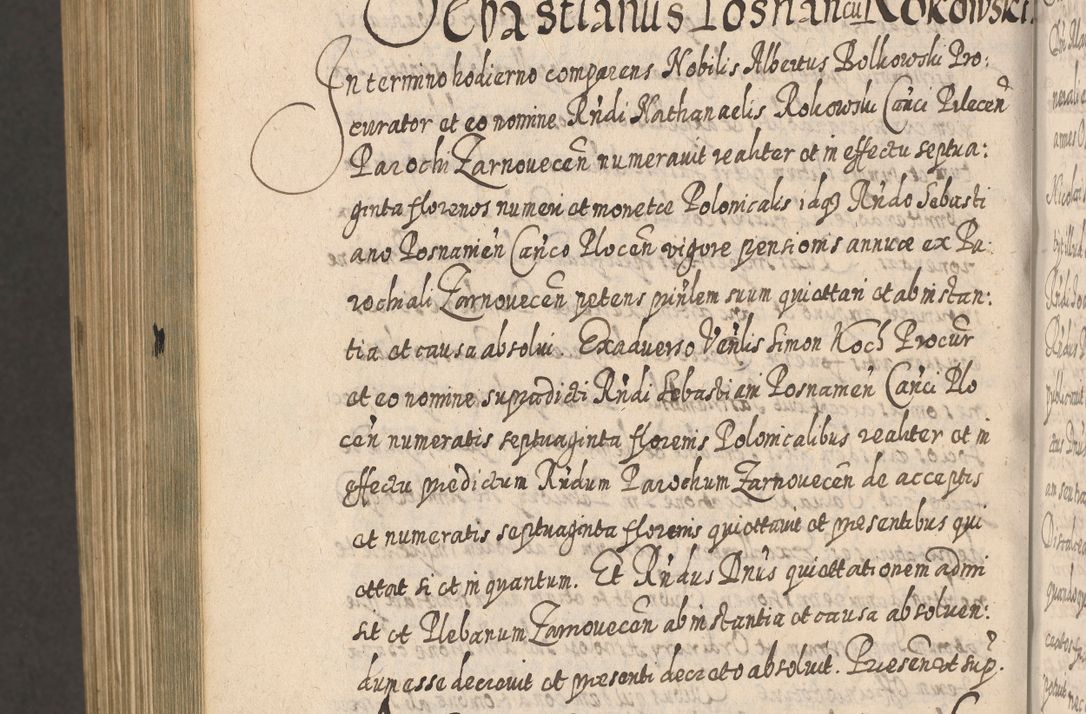 Sebastianus Posnan cu Rokowski.
In termino hodierno comparens Nobilis Albertus Bolkowski Pro:
curator et eo nomine Rndi Nathanaelis Rokowski Canci Pilecen
Parochi Zarnovecen numeravit realiter et in effectu septua:
ginta florenos numeri et monetæ Polonicalis idq3 Rndo Sebasti
ano Posnamien Canco Plocen vigore pensionis annuæ ex Pa
rochiali Zarnovecen petens prinlem suum quiettari et ab instan:
tia et causa absolvi. Ex adverso Venlis Simon Koch Procur
et eo nomine supradicti Rndi Sebastiani Posnamen Canci Plo
cen numeratis septuaginta florenis Polonicalibus realiter et in
effectu predictum Rndum Parochum Zarnovecen de acceptis
et numeratis septuaginta florenis quiettavit et presentibus qui
ettat si et in quantum. Et Rndus Dnus quiettationem admi
sit et Plebanum Zarnovecen ab instantia et causa absolven:
dum esse decrevit et presenti decreto absolvit. Present sup.